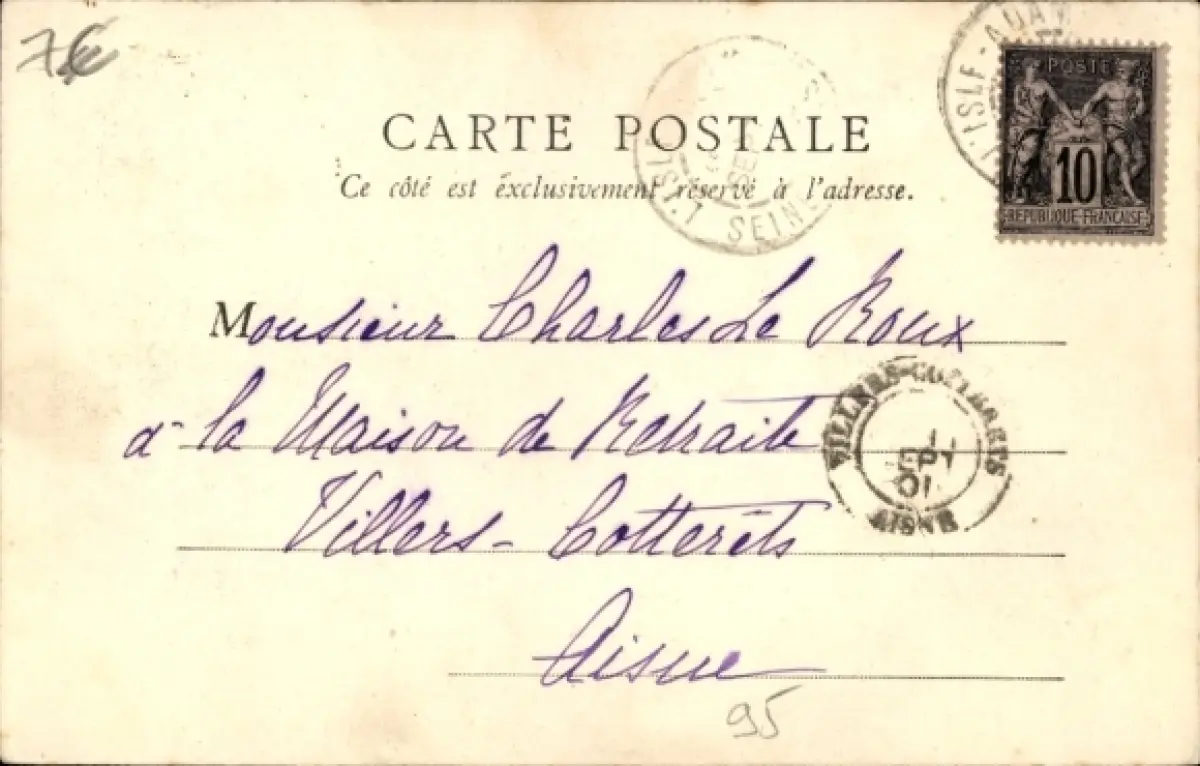 7€
CARTE POSTALE
Ce côté est exclusivement réservé à l'adresse.
L'ISLE-ADAM
POSTE
10
REPUBLIQUE FRANÇAISE
L'ISL
SEIN
SE
Monsieur Charles Le Roux
à la Maison de Retraite
Villers-Cotterêts
Aisne
VILLERS-COTTERETS
1
EPT
01
AISNE
95